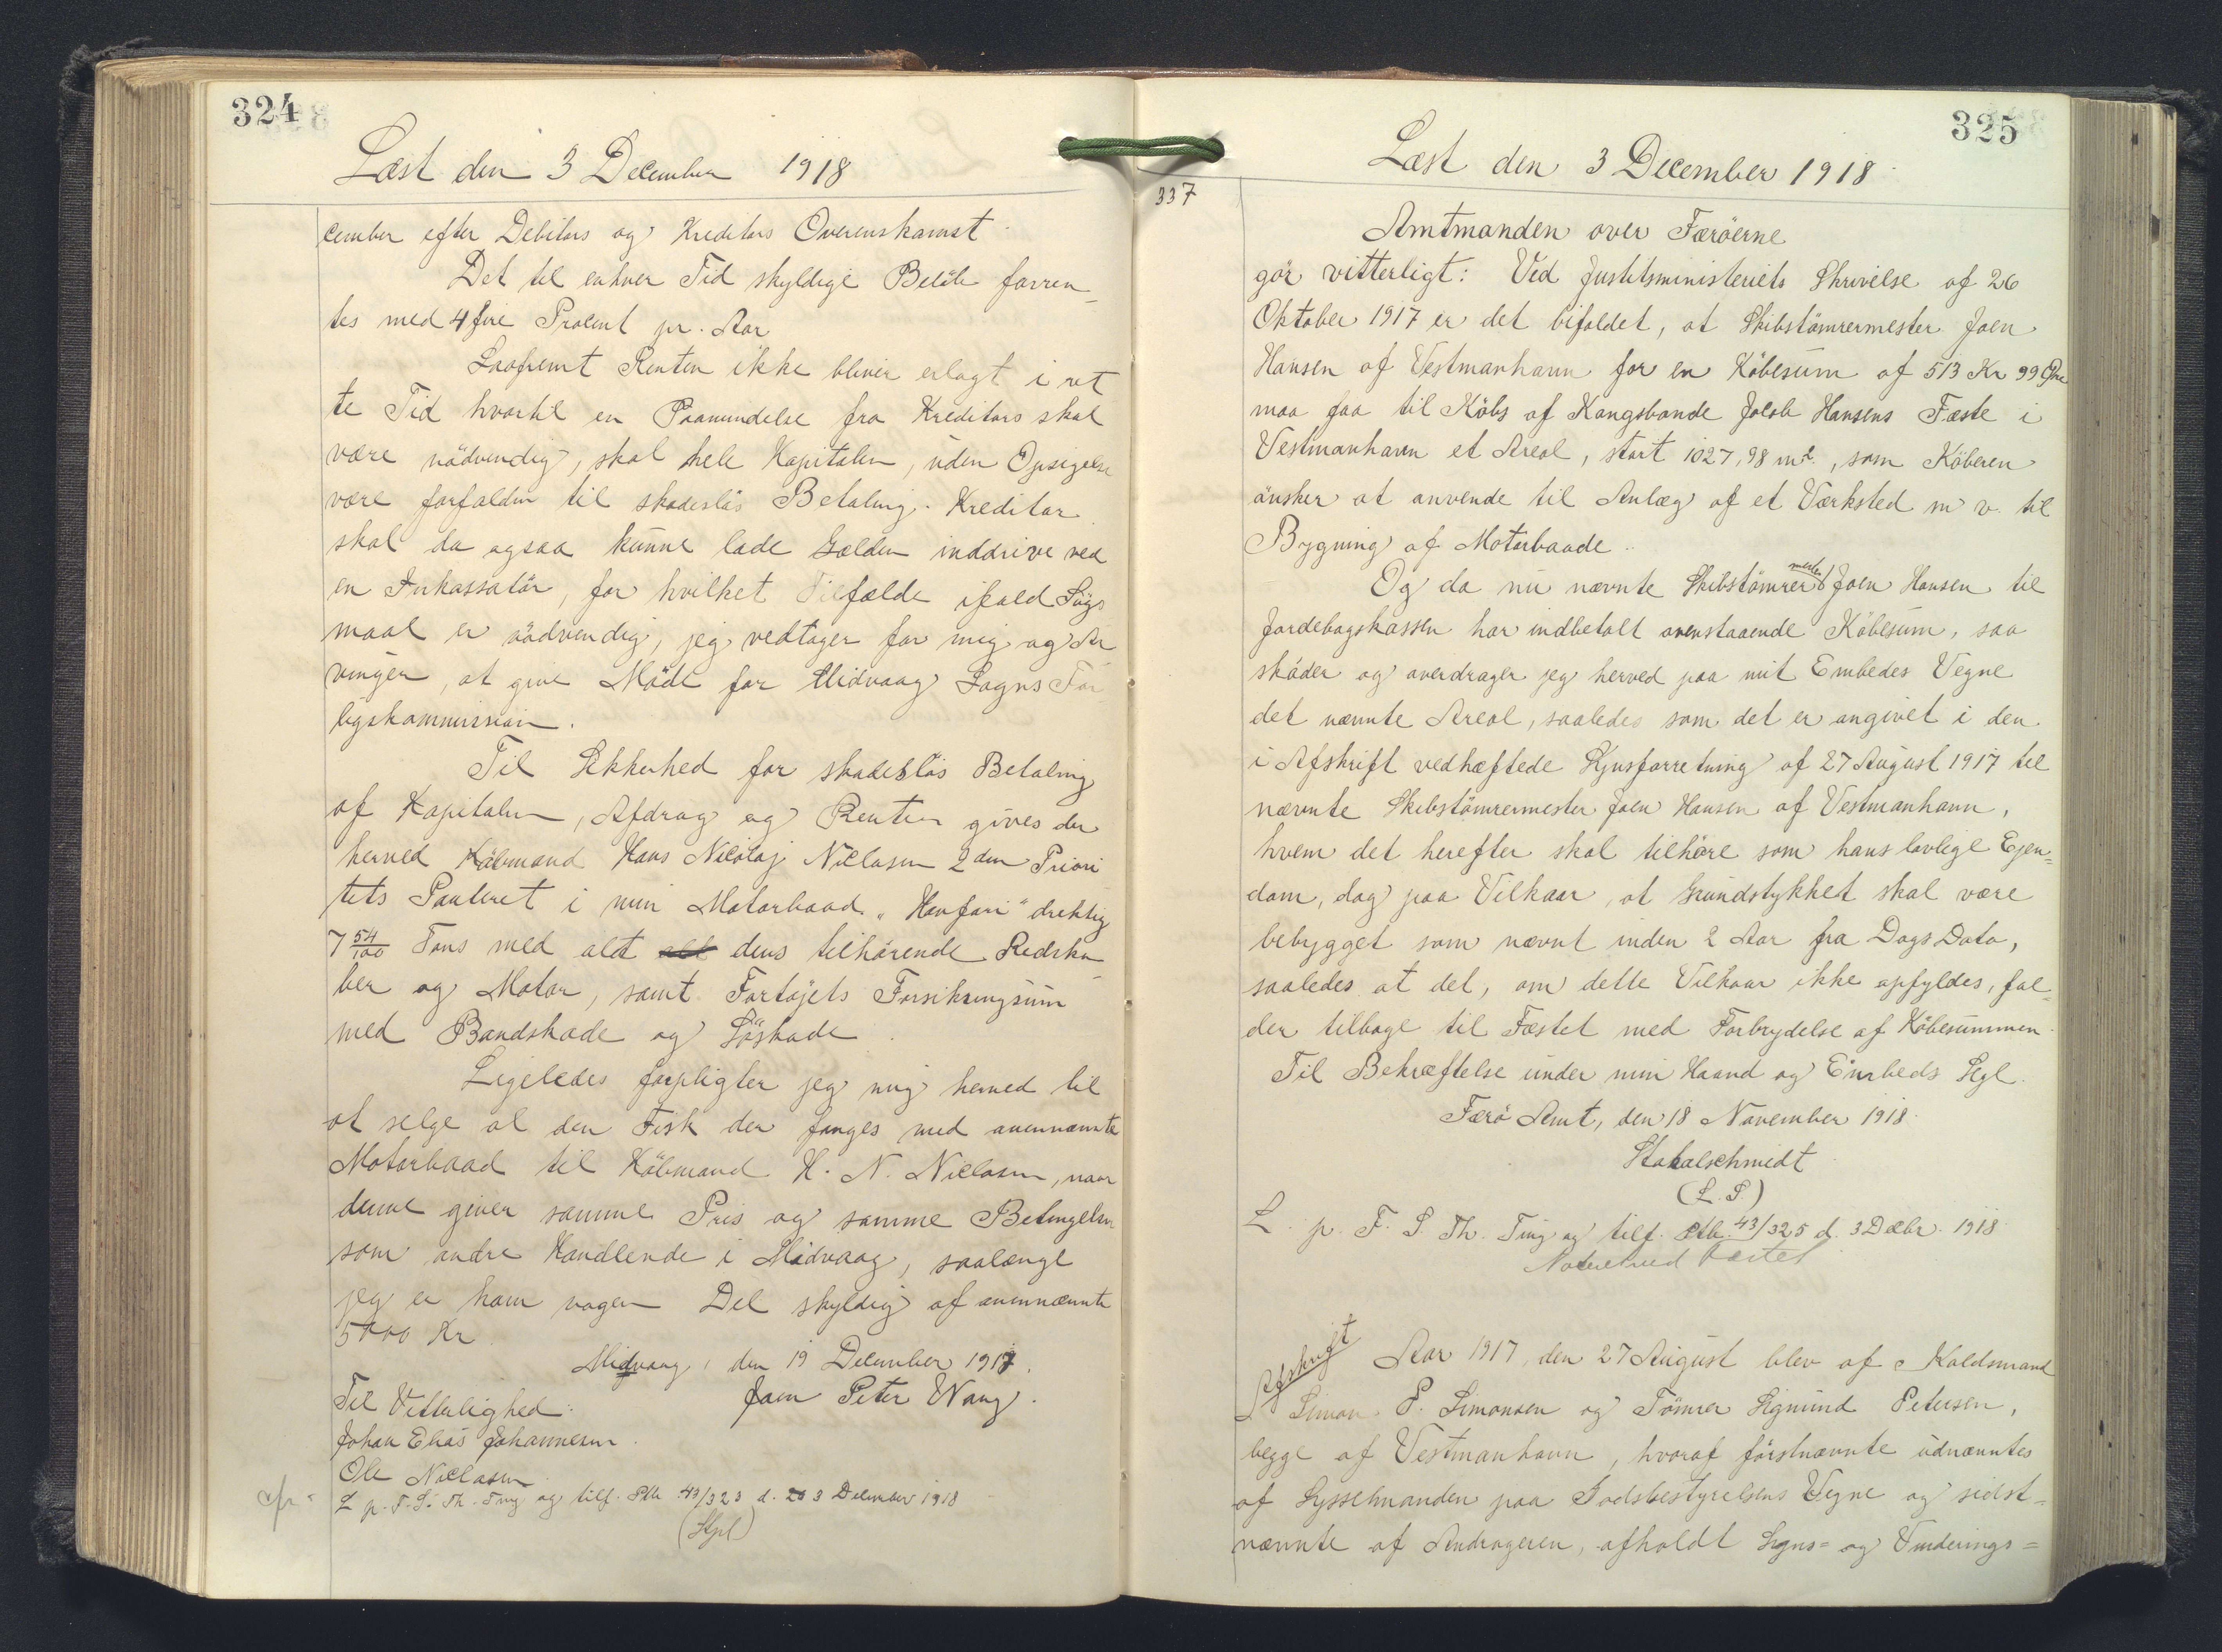 324
Læst den 3 December 1918
cember efter Debitors og Kreditors Overenskomst.
Det til enhver Tid skyldige Belöb forren-
tes med 4 fire Procent pr. Aar
Saafremt Renten ikke bliver erlagt i ret
te Tid hvortil en Paamindelse fra Kreditors skal
være nödvendig, skal hele Kapitalen, uden Opsigelse
være forfalden til skadeslös Betaling. Kreditor
skal da ogsaa kunne lade Gælden inddrive ved
en Inkassatör, for hvilket Tilfælde ifald Sögs
maal er nödvendig, jeg vedtager for mig og Ar
vinger, at give Möde for Midvaag Sogns For
ligskommission.
Til Sikkerhed for skadeslös Betaling
af Kapitalen, Afdrag og Renter gives der
herved Köbmand Hans Nicolaj Niclasen 2den Priori
tets Panteret i min Motorbaad "Havfari" drektig
7 54/100 Tons med alt alt dens tilhörende Redska
ber og Motor, samt Fartöjets Forsikringsum
med Bandskade og Söskade.
Ligeledes forpligter jeg mig herved til
at selge al den Fisk der fanges med ovennævnte
Motorbaad til Köbmand H. N. Niclasen, naar
denne giver samme Pris og samme Betingelser
som andre Handlende i Midvaag, saalænge
jeg er ham nogen Del skyldig af ovennævnte
5000 Kr
Midvaag, den 19 December 1917.
Til Vitterlighed: Joen Peter Wang.
Johan Elias Johannesen.
Ole Niclasen
L p. F. S. Th. Ting og tilf. Ptb 43/323 d. 3 December 1918
(Stpl)
325
Læst den 3 December 1918.
337
Amtmanden over Færöerne
gör vitterligt: Ved Justitsministeriets Skrivelse af 26
Oktober 1917 er det bifaldet, at Skibstömrermester Joen
Hansen af Vestmanhavn for en Köbesum af 513 Kr 99 Öre
maa faa til Köbs af Kongsbonde Jacob Hansens Fæste i
Vestmanhavn et Areal, stort 1027,98 m2., som Köberen
önsker at anvende til Anlæg af et Værksted m v. til
Bygning af Motorbaade.
Og da nu nævnte Skibstömrermester Joen Hansen til
Jordebogskassen har indbetalt ovenstaaende Köbesum, saa
sköder og overdrager jeg herved paa mit Embedes Vegne
det nævnte Areal, saaledes som det er angivet i den
i Afskrift vedhæftede Synsforretning af 27 August 1917 til
nævnte Skibstömrermester Joen Hansen af Vestmanhavn,
hvem det herefter skal tilhöre som hans lovlige Ejen=
dom, dog paa Vilkaar, at Grundstykket skal være
bebygget som nævnt inden 2 Aar fra Dags Dato,
saaledes at det, om dette Vilkaar ikke opfyldes, fal=
der tilbage til Fæstet med Forbrydelse af Köbesummen.
Til Bekræftelse under min Haand og Embeds Segl.
Færö Amt, den 18 November 1918.
Stahlschmidt
(L. S.)
L. p. F. S. Th. Ting og tilf. Ptb. 43/325 d. 3 Decbr. 1918.
Afskrift
Aar 1917, den 27 August blev af Kaldsmand
Simon P. Simonsen og Tömrer Sigmund Petersen,
begge af Vestmanhavn, hvoraf förstnævnte udnævntes
af Sysselmanden paa Godsbestyrelsens Vegne og sidst=
nævnte af Andrageren, afholdt Syns= og Vurderings=